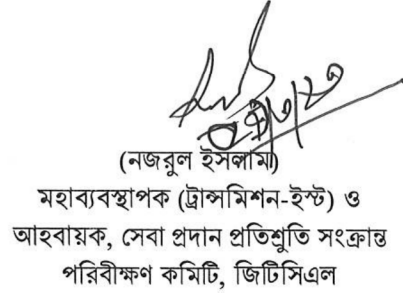 (নজরুল ইসলাম)
মহাব্যবস্থাপক (ট্রান্সমিশন-ইস্ট) ও
আহবায়ক, সেবা প্রদান প্রতিশ্রুতি সংক্রান্ত
পরিবীক্ষণ কমিটি, জিটিসিএল